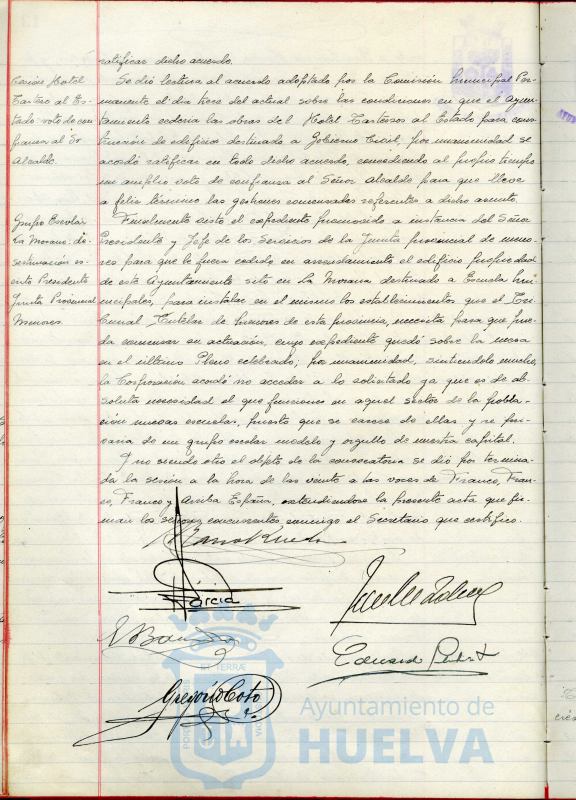 ratificar dicho acuerdo.
Cesión Hotel
Tartero al Es-
tado voto de con
fianza al Sr
Alcalde.
Se dió lectura al acuerdo adoptado por la Comisión Municipal Per-
manente el dia trece del actual sobre las condiciones en que el Ayun-
tamiento cederia las obras del Hotel Tartessos al Estado para cons-
trucción de edificio destinado a Gobierno Civil, por unanimidad se
acordó ratificar en todo dicho acuerdo, concediendo al propio tiempo
un amplio voto de confianza al Señor Alcalde para que lleve
a feliz término las gestiones comenzadas referentes a dicho asunto.
Grupo Escolar
La Morana: de-
sestimación es-
crito Presidente
Junta Provincial
Menores.
Finalmente visto el expediente promovido a instancia del Señor
Presidente y Jefe de los Servicios de la Junta provincial de meno-
res para que le fuera cedido en arrendamiento el edificio propiedad
de este Ayuntamiento sito en La Morana destinado a Escuela Mu-
nicipales, para instalar en el mismo los establecimientos que el Tri-
bunal Tutelar de Menores de esta provincia, necesita para que pue-
da comenzar su actuación, cuyo expediente quedó sobre la mesa
en el último Pleno celebrado; por unanimidad, sintiendolo mucho,
la Corporación acordó no acceder a lo solicitado ya que es de ab-
soluta necesidad el que funcione en aquel sector de la pobla-
ción nuevas escuelas, puesto que se carece de ellas y se pri-
varia de un grupo escolar modelo y orgullo de nuestra capital.
Y no siendo otro el objeto de la convocatoria se dió por termina-
da la sesión a la hora de las veinte a las voces de Franco, Fran-
co, Franco y Arriba España, extendiendose la presente acta que fir-
man los señores concurrentes conmigo el Secretario que certifico.
García
Eduardo
Gregorio Coto
Ayuntamiento de
HUELVA